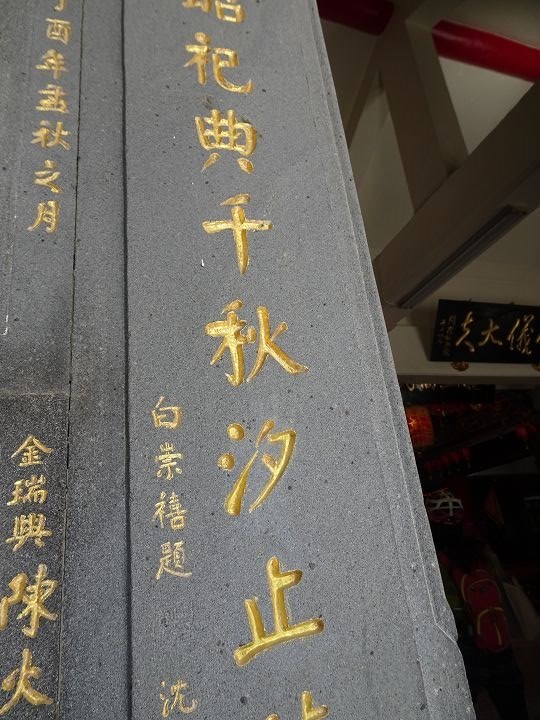 昭祀典千秋汐止
白崇禧題
沈
酉年孟秋之月
金瑞興陳火
儀大夫